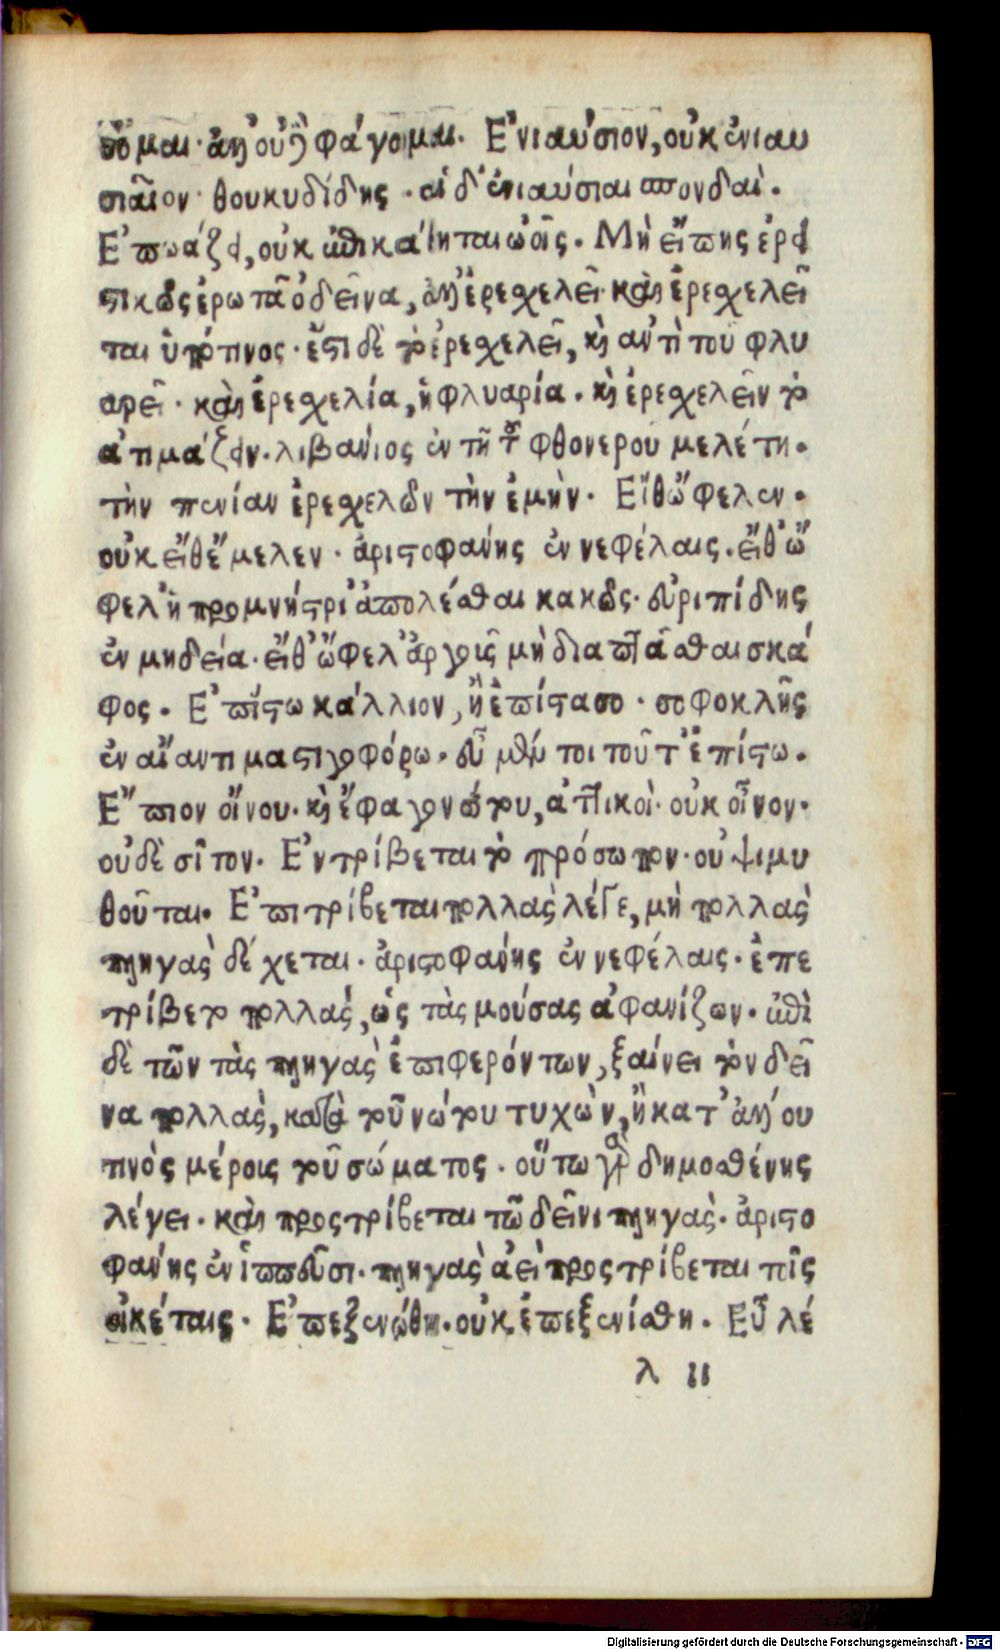 δομαι· ἀντὶ οὗ φάγομαι. Ἐνιαύσιον, οὐκ ἐνιαυ
σιαῖον· θουκυδίδης· αἱ δ' ἐνιαύσιαι σπονδαὶ.
Ἐπωάζει, οὐκ ἐπικάθηται ὠοῖς. Μὴ εἴπης ἐρε
στικῶς ἐρωτᾶ ὁ δεῖνα, ἀντὶ ἐρεχελεῖ· καὶ ἐρεχελεῖ
ται ὑπό τινος· ἔστι δὲ τὸ ἐρεχελεῖ, καὶ ἀντὶ τοῦ φλυ
αρεῖ· καὶ ἐρεχελία, ἡ φλυαρία. καὶ ἐρεχελεῖν τὸ
ἀτιμάζειν. λιβανίος ἐν τῆ τοῦ φθονεροῦ μελέτη.
τὴν πενίαν ἐρεχελῶν τὴν ἐμὴν. Εἴθ' ὤφελεν.
οὐκ εἴθ' ἔμελεν· ἀριστοφάνης ἐν νεφέλαις. εἴθ' ὤ
φελ' ἡ προμνήστρι' ἀπολέσθαι κακῶς· εὐριπίδης
ἐν μηδεία. εἴθ' ὤφελ' ἀργοῦς μὴ διαπτᾶσθαι σκά
φος. Ἐπίστω κάλλιον, ἢ ἐπίστασο· σοφοκλῆς
ἐν αἴαντι μαστιγοφόρω. εὖ μέν τοι τοῦτ' ἐπίστω.
Ἔπιον οἴνου. καὶ ἔφαγον ἄρτου, ἀττικοὶ· οὐκ οἶνον.
οὐδὲ σῖτον. Ἐντρίβεται τὸ πρόσωπον· οὐ ψιμυ
θοῦται. Ἐπιτρίβεται πολλὰς λέγε, μὴ πολλὰς
πληγὰς δέχεται. ἀριστοφάνης ἐν νεφέλαις. ἐπε
τρίβετο πολλάς, ὡς τὰς μούσας ἀφανίζων. ἐπὶ
δὲ τῶν τὰς πληγὰς ἐπιφερόντων, ξαίνει τὸν δεῖ
να πολλὰς, κατὰ τοῦ νώτου τυχὼν, ἢ κατ' ἄλλου
τινὸς μέρους τοῦ σώματος. οὕτω γὰρ δημοσθένης
λέγει. καὶ προστρίβεται τῶ δεῖνι πληγὰς. ἀριστο
φάνης ἐν ἱππεῦσι. πληγὰς ἀεὶ προστρίβεται τοῖς
οἰκέταις. Ἐπεξενώθη. οὐκ ἐπεξενίσθη. Εὖ λέ
λ ιι
Digitalisierung gefördert durch die Deutsche Forschungsgemeinschaft - DFG